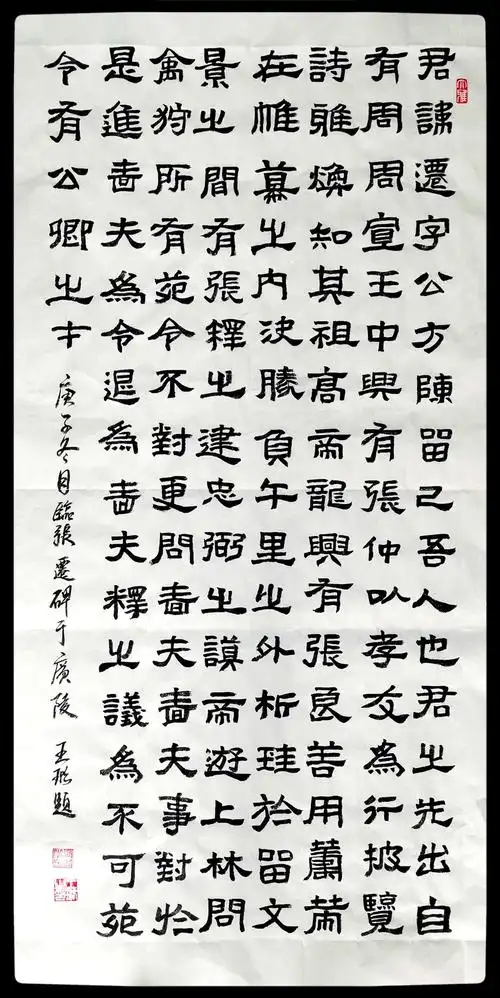 君諱遷字公方陳留己吾人也君之先出自
有周周宣王中興有張仲以孝友為行披覽
詩雅煥知其祖高帝龍興有張良善用籌策
在帷幕之内決勝負千里之外析珪於留文
景之間有張釋之建忠弼之謨帝遊上林問
禽狩所有苑令不對更問嗇夫嗇夫事對於
是進嗇夫為令退為嗇夫釋之議為不可苑
令有公卿之才
庚子冬月臨張遷碑于廣陵 王題